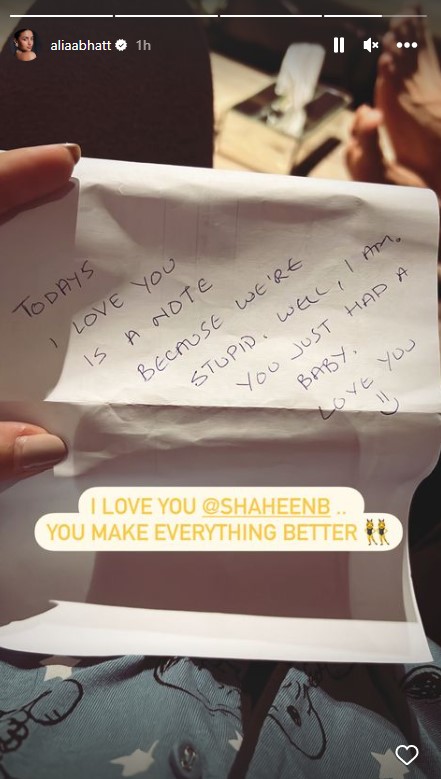 aliaabhatt 1h
TODAYS
I LOVE YOU
IS A NOTE
BECAUSE WE'RE
STUPID. WELL, I AM.
YOU JUST HAD A
BABY.
LOVE YOU
I LOVE YOU @SHAHEENB ..
YOU MAKE EVERYTHING BETTER